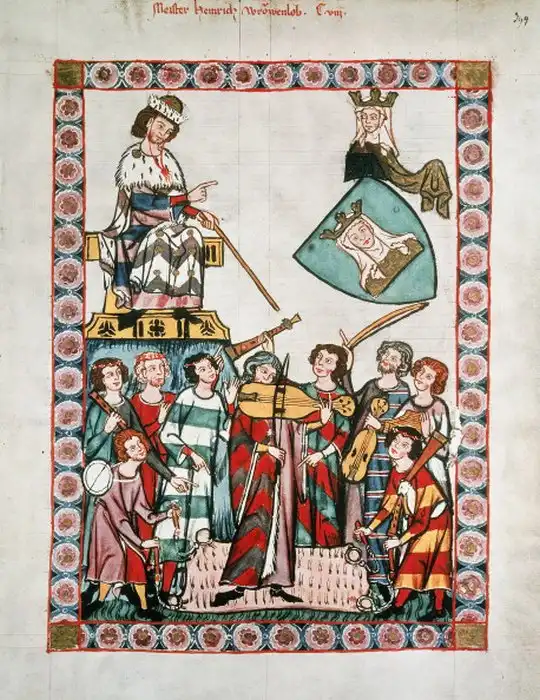 Meister Heinrich Vrŏwenlob. C·viij·
399